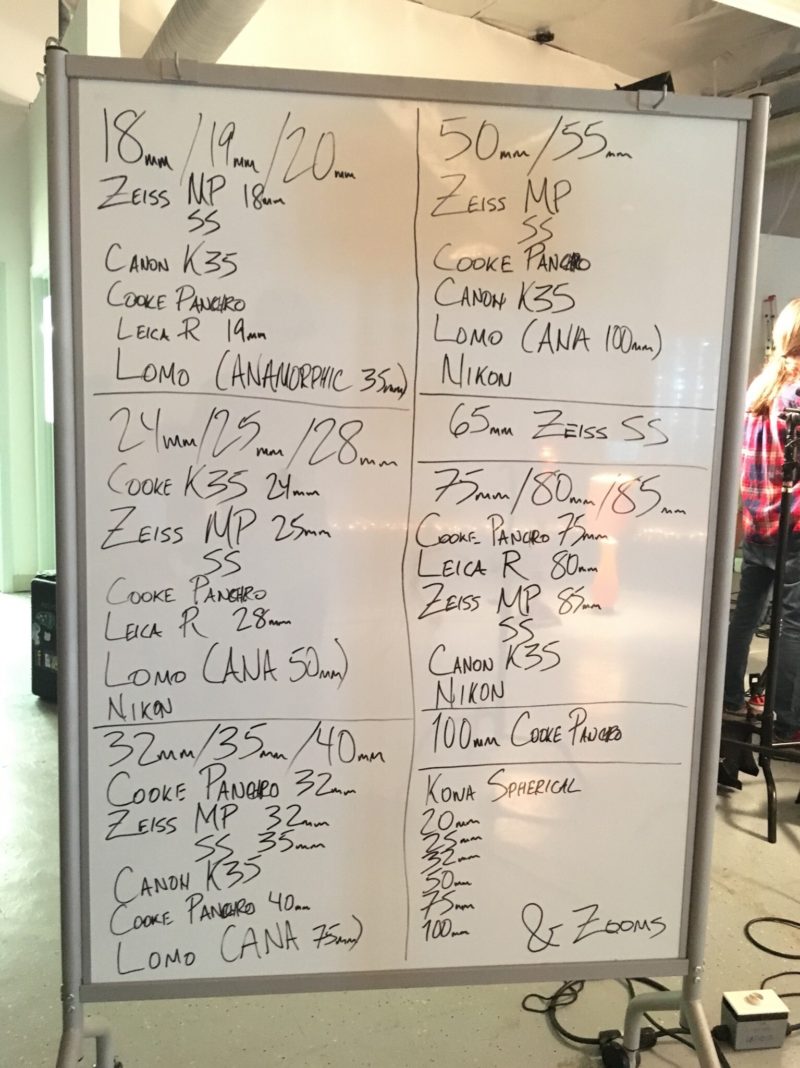 18mm/19mm/20mm
ZEISS MP 18mm
SS
CANON K35
COOKE PANCHRO
LEICA R 19mm
LOMO (ANAMORPHIC 35mm)
24mm/25mm/28mm
COOKE K35 24mm
ZEISS MP 25mm
SS
COOKE PANCHRO
LEICA R 28mm
LOMO (ANA 50mm)
NIKON
32mm/35mm/40mm
COOKE PANCHRO 32mm
ZEISS MP 32mm
SS 35mm
CANON K35
COOKE PANCHRO 40mm
LOMO (ANA 75mm)
50mm/55mm
ZEISS MP
SS
COOKE PANCHRO
CANON K35
LOMO (ANA 100mm)
NIKON
65mm ZEISS SS
75mm/80mm/85mm
COOKE PANCHRO 75mm
LEICA R 80mm
ZEISS MP 85mm
SS
CANON K35
NIKON
100mm COOKE PANCHRO
KOWA SPHERICAL
20mm
25mm
32mm
50mm
75mm
100mm
& ZOOMS